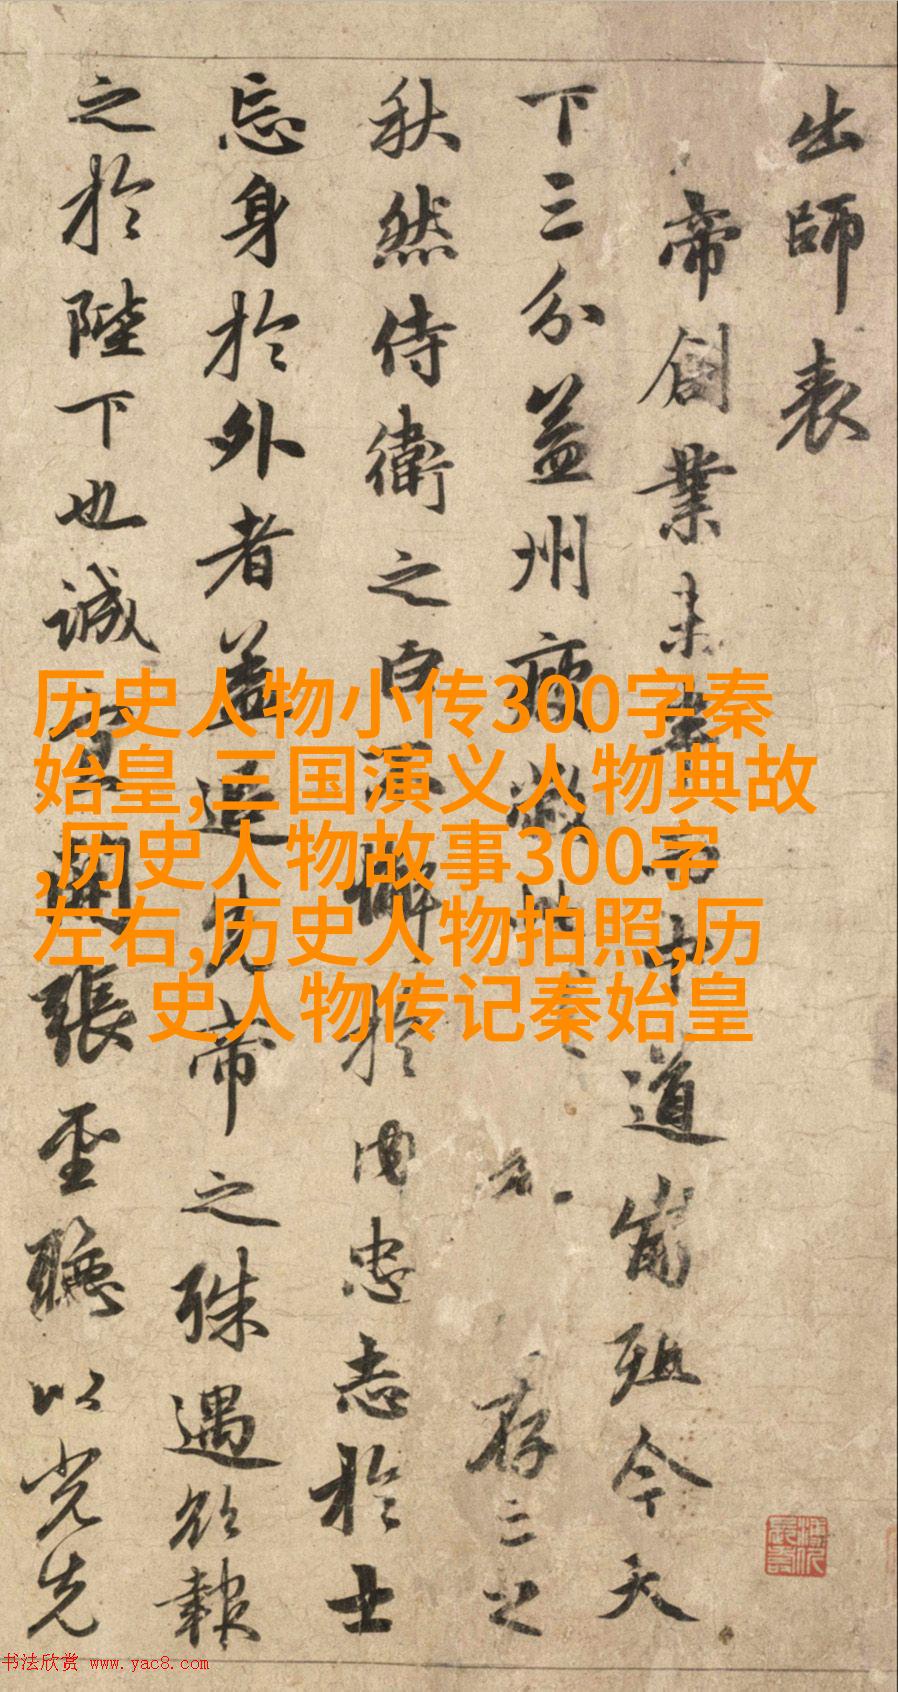 出師表
帝創業未半而中道崩殂今天
下三分益州疲敝此 存亡之
秋然侍衛之臣不懈於内忠志於士
忘身於外者蓋追先帝之殊遇欲報
之於陛下也誠宜開張聖聽以光先
历史人物小传300字秦
始皇,三国演义人物典故
,历史人物故事300字
左右,历史人物拍照,历
史人物传记秦始皇
书法欣赏 www.yac8.com